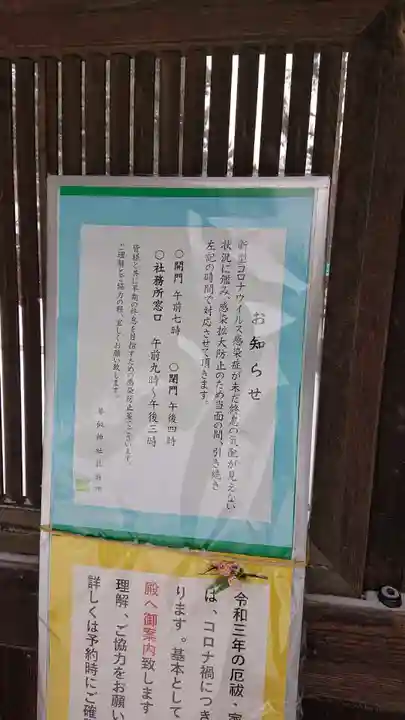 お知らせ
新型コロナウイルス感染症が未だ終息の気配が見えない
状況に鑑み、感染拡大防止のため当面の間、引き続き
左記の時間で対応させて頂きます。
○開門 午前七時 ○閉門 午後四時
○社務所窓口 午前九時～午後三時
皆様と共に早期の終息を目指すための感染防止策でございます。
ご理解と協力の程、宜しくお願い致します。
令和三年の厄祓・
は、コロナ禍につき
ります。基本として
殿へ御案内致します
理解、ご協力をお願い
詳しくは予約時にご確